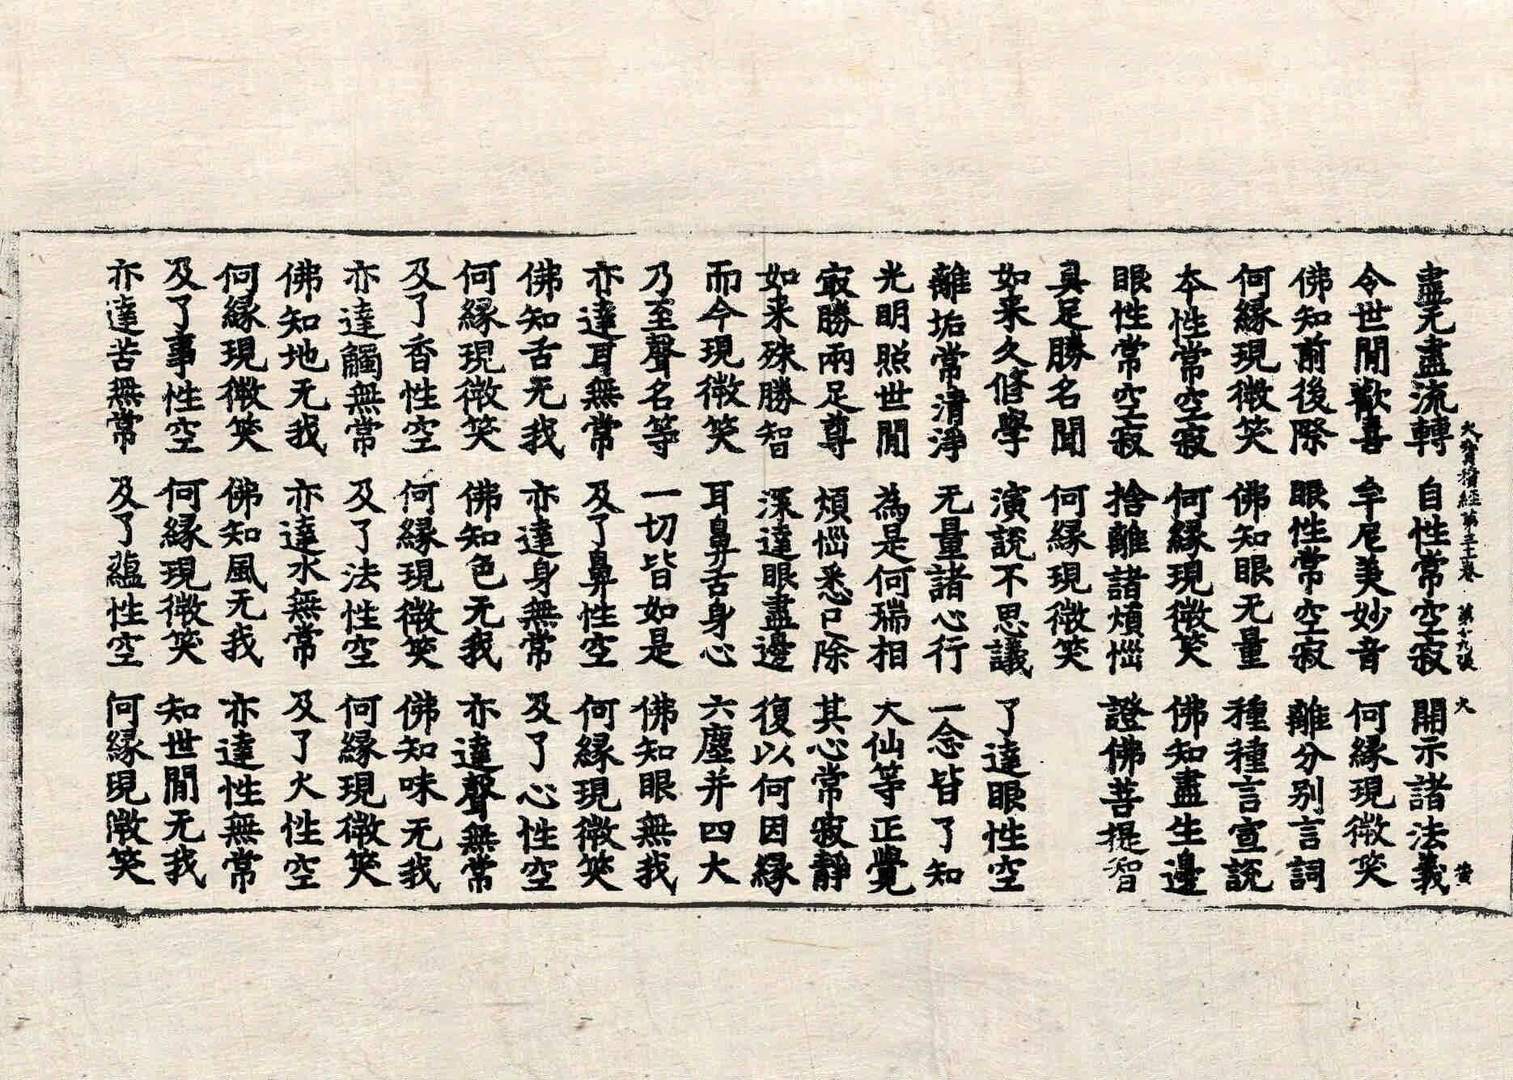 大寶積經第三十
盡无盡流轉 自性常空寂 開示諸法義
令世間歡喜 牟尼美妙音 何緣現微笑
佛知前後際 眼性常空寂 離分別言詞
何緣現微笑 佛知眼无量 種種言宣說
本性常空寂 何緣現微笑 佛知盡生邊
眼性常空寂 捨離諸煩惱 證佛菩提智
具足勝名聞 何緣現微笑
如来久修學 演說不思議 了達眼性空
離垢常清淨 无量諸心行 一念皆了知
光明照世間 為是何瑞相 大仙等正覺
㝡勝兩足尊 煩惱悉已除 其心常寂靜
如来殊勝智 深達眼盡邊 復以何因緣
而今現微笑 耳鼻舌身心 六塵并四大
乃至聲名等 一切皆如是 佛知眼無我
亦達耳無常 及了鼻性空 何緣現微笑
佛知舌无我 亦達身無常 及了心性空
何緣現微笑 佛知色无我 亦達聲無常
及了香性空 何緣現微笑 佛知味无我
亦達觸無常 及了法性空 何緣現微笑
佛知地无我 亦達水無常 及了火性空
何緣現微笑 佛知風无我 亦達性無常
及了事性空 何緣現微笑 知世間无我
亦達苦無常 及了蘊性空 何緣現微笑